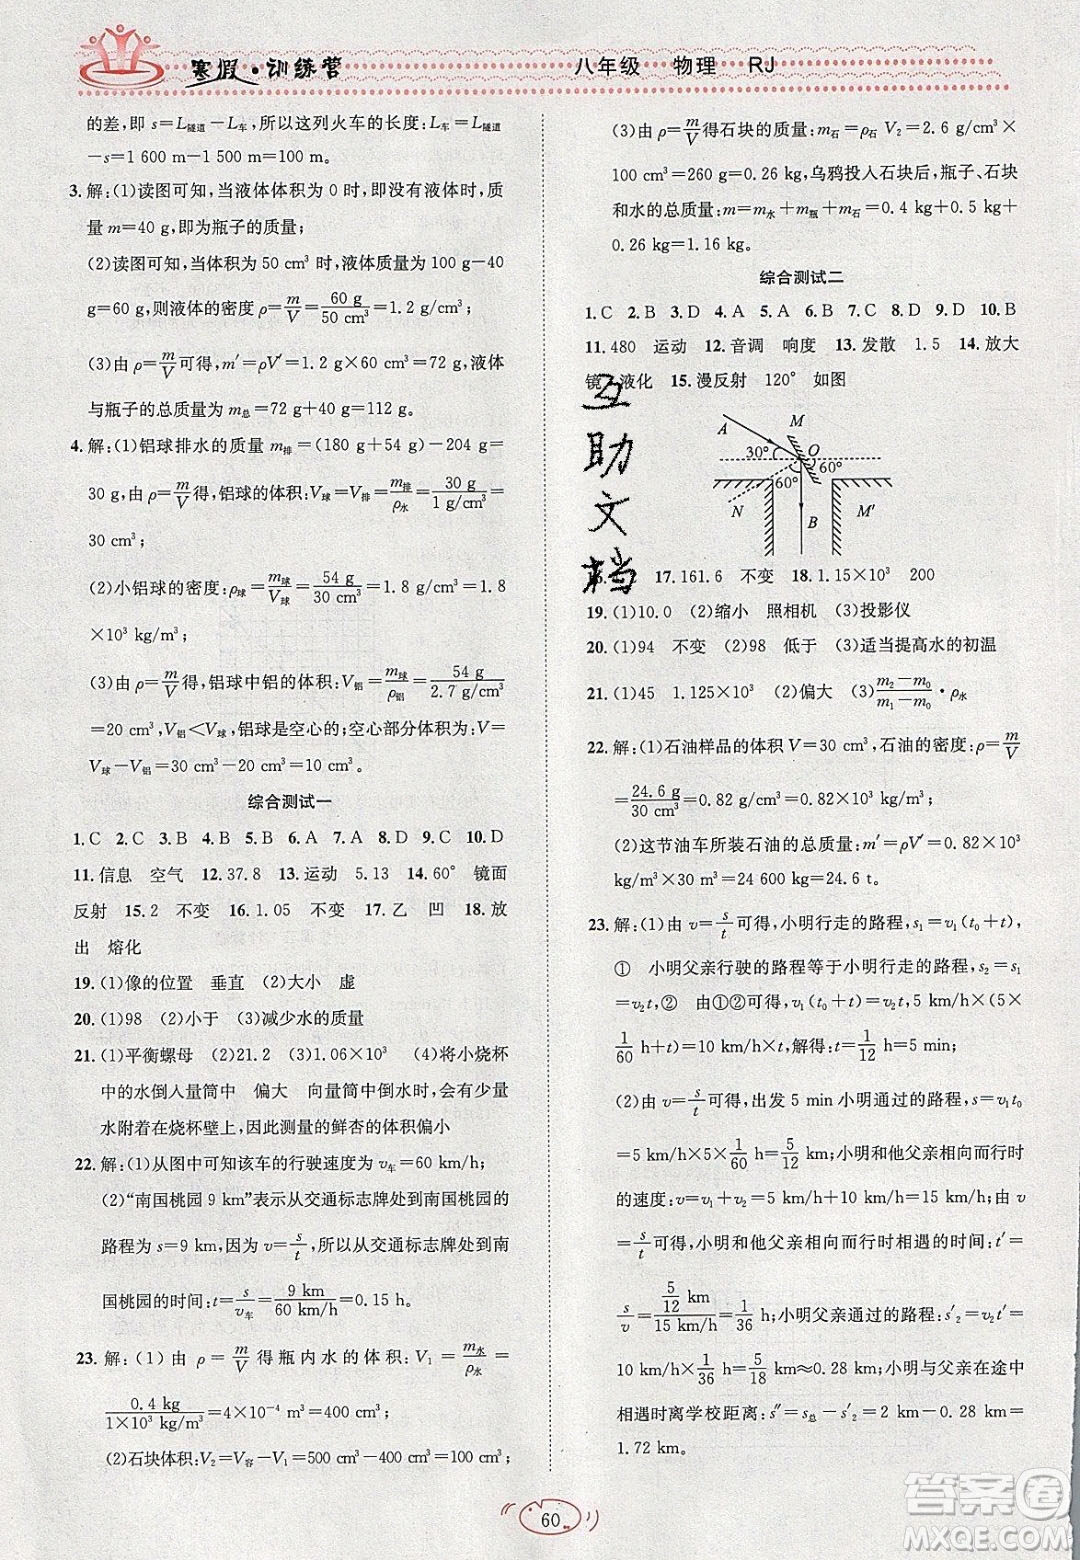 寒假·训练营
八年级 物理 RJ
的差,即 s=L隧道-L车,所以这列火车的长度:L车=L隧道
-s=1 600 m-1 500 m=100 m。
3. 解:(1)读图可知,当液体体积为 0 时,此时没有液体,质
量 m=40 g,即为瓶子的质量;
(2)读图可知,当体积为 50 cm³ 时,液体质量=100 g-40
g=60 g,则液体的密度 ρ=m/V=60 g/50 cm³=1.2 g/cm³;
(3)由 ρ=m/V可得,m′=ρV′=1.2 g/cm³×60 cm³=72 g,液体
与瓶子的总质量为 m总=72 g+40 g=112 g。
4. 解:(1)铝球排水的质量 m排=(180 g+54 g)-204 g=
30 g,由 ρ=m/V得,铝球的体积:V球=V排=m排/ρ水=30 g/1 g/cm³=
30 cm³;
(2)小铝球的密度:ρ球=m球/V球=54 g/30 cm³=1.8 g/cm³=1.8
×10³ kg/m³;
(3)由 ρ=m/V得,铝球中铝的体积:V铝=m球/ρ铝=54 g/2.7 g/cm³
=20 cm³,V铝<V球,铝球是空心的;空心部分体积为:V=
V球-V铝=30 cm³-20 cm³=10 cm³。
综合测试一
1.C 2.C 3.B 4.B 5.B 6.A 7.A 8.D 9.C 10.D
11.信息 空气 12.37.8 13.运动 5.13 14.60° 镜面
反射 15.2 不变 16.1.05 不变 17.乙 凹 18.放
出 熔化
19. (1)像的位置 垂直 (2)大小 虚
20. (1)98 (2)小于 (3)减少水的质量
21. (1)平衡螺母 (2)21.2 (3)1.06×10³ (4)将小烧杯
中的水倒入量筒中 偏大 向量筒中倒水时,会有少量
水附着在烧杯壁上,因此测量的鲜杏的体积偏小
22. 解:(1)从图中可知该车的行驶速度为 v车=60 km/h;
(2)“南国桃园 9 km”表示从交通标志牌处到南国桃园的
路程为 s=9 km,因为 v=s/t,所以从交通标志牌处到南
国桃园的时间:t=s/v车=9 km/60 km/h=0.15 h。
23. 解:(1)由 ρ=m/V 得瓶内水的体积:V₁=m水/ρ水=
0.4 kg/1×10³ kg/m³=4×10⁻⁴ m³=400 cm³;
(2)石块体积:V₂=V容-V₁=500 cm³-400 cm³=100 cm³;
(3)由 ρ=m/V得石块的质量:m石=ρ石 V₂=2.6 g/cm³×
100 cm³=260 g=0.26 kg,乌鸦投入石块后,瓶子、石块
和水的总质量:m=m水+m瓶+m石=0.4 kg+0.5 kg+
0.26 kg=1.16 kg。
综合测试二
1.C 2.B 3.D 4.A 5.A 6.B 7.C 8.D 9.D 10.B
11.480 运动 12.音调 响度 13.发散 1.5 14.放大
镜 液化 15.漫反射 120° 如图
A M
30° O
60° 60°
N B M′
17.161.6 不变 18.1.15×10³ 200
19. (1)10.0 (2)缩小 照相机 (3)投影仪
20. (1)94 不变 (2)98 低于 (3)适当提高水的初温
21. (1)45 1.125×10³ (2)偏大 (3)m₂-m₀/m₁-m₀·ρ水
22. 解:(1)石油样品的体积 V=30 cm³,石油的密度:ρ=m/V
=24.6 g/30 cm³=0.82 g/cm³=0.82×10³ kg/m³;
(2)这节油车所装石油的总质量:m′=ρV′=0.82×10³
kg/m³×30 m³=24 600 kg=24.6 t。
23. 解:(1)由 v=s/t可得,小明行走的路程,s₁=v₁(t₀+t),
① 小明父亲行驶的路程等于小明行走的路程,s₂=s₁
=v₂t,② 由①②可得,v₁(t₀+t)=v₂t,5 km/h×(5×
1/60 h+t)=15 km/h×t,解得:t=1/24 h;
(2)由 v=s/t可得,出发 5 min 小明通过的路程,s=v₁t₀
=5 km/h×5×1/60 h=5/12 km=5/12 km,小明与父亲相遇
的速度:v=v₁+v₂=5 km/h+10 km/h=15 km/h,由 v
=s/t可得,小明和他父亲相向而行时相遇的时间:t′=
s/v=5/12 km/15 km/h=1/36 h;小明父亲通过的路程:s′₂=v₂t′=
10 km/h×1/36 h=5/18 km≈0.28 km,小明与父亲在途中
相遇时离学校距离:s″=s总-s′₂=2 km-0.28 km=
1.72 km。
互助文档
60
答案圈
MXQE.COM